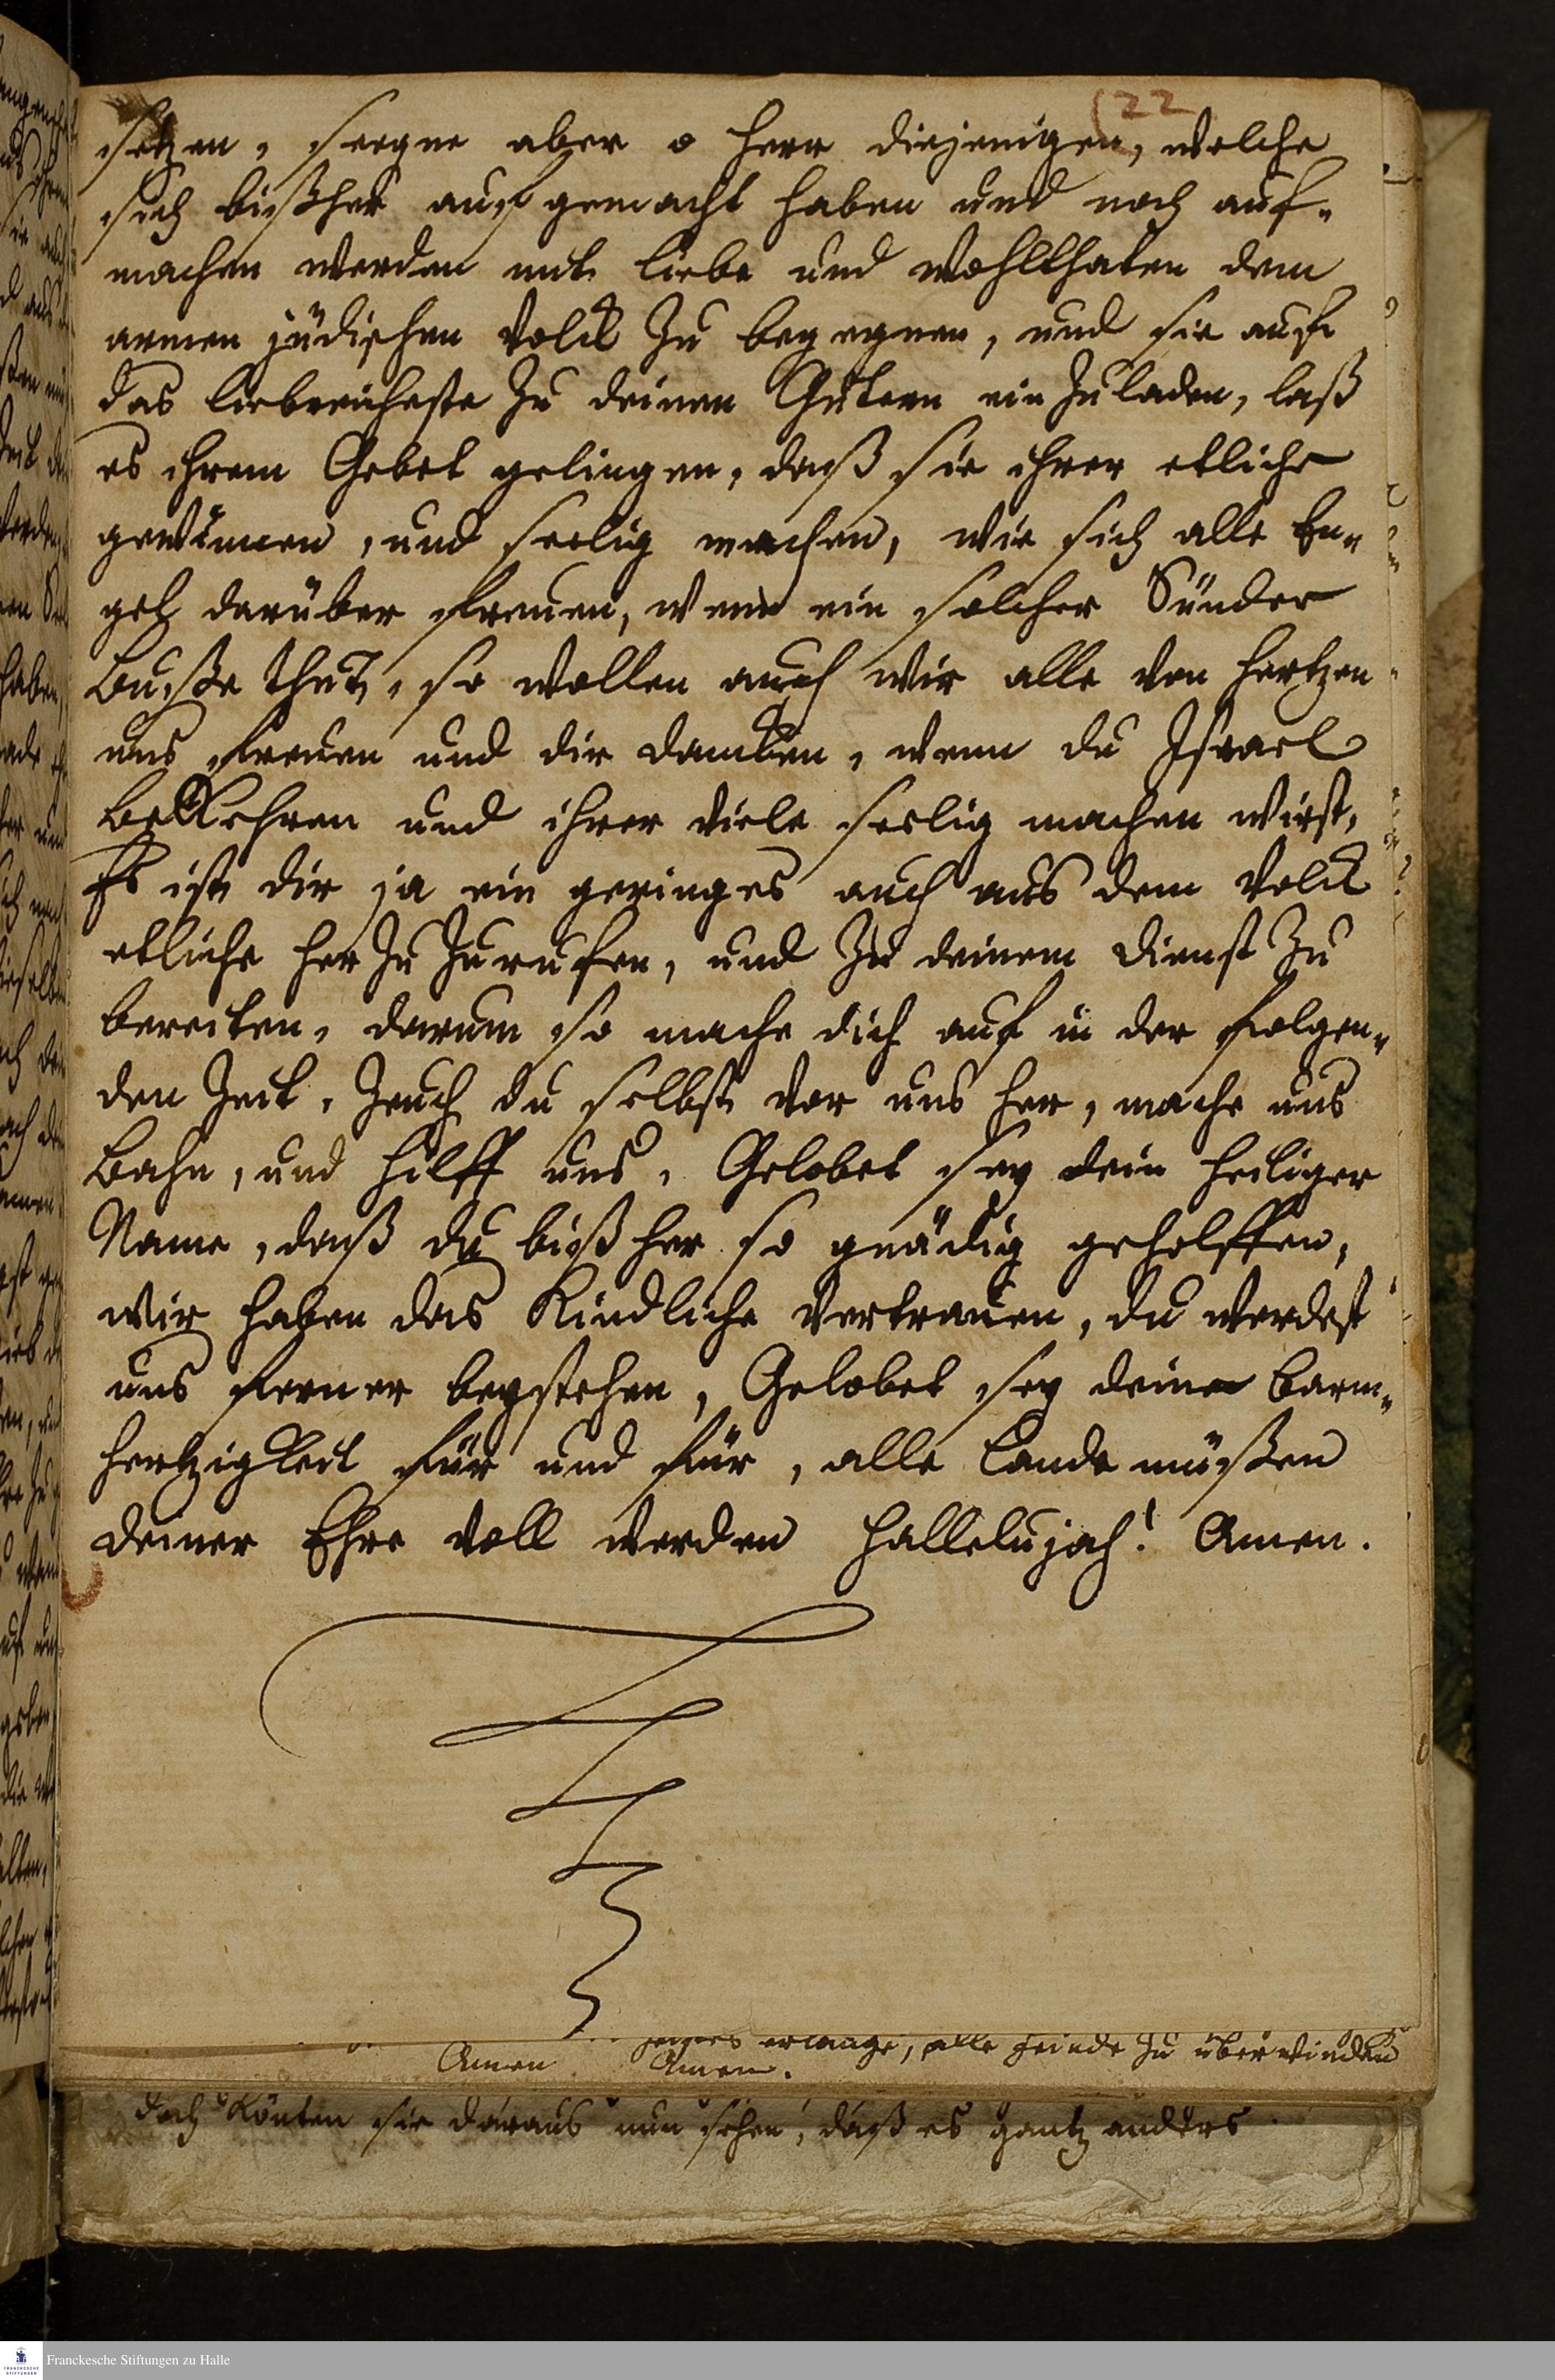 (22
setzen, seegne aber o Herr diejenigen, welche
sich bißher auf gemacht haben und noch auf-
machen werden mit liebe und wohlthaten dem
armen jüdischen Volck zu begegnen, und sie auf
das liebreicheste zu deinen Gütern ein zuladen, laß
es ihrem Gebet gelingen, daß sie ihrer etliche
gewinnen, und seelig machen, wie sich alle En-
gel darüber freuen, wenn ein solcher Sünder
Buße thut, so wollen auch wir alle von Hertzen
uns freuen und dir dancken, wenn du Israel
bekehren und ihrer viele seelig machen wirst,
Es ist dir ja ein geringes auch aus dem Volck
etliche her zu zurufen, und zu deinem Dienst zu
bereiten, darum so mache dich auf in der folgen-
den Zeit, Zeuch du selbst vor uns her, mache uns
Bahn, und hilff uns, Gelobet sey dein heiliger
Name, daß du bißher so gnädig geholffen,
wir haben das Kindliche Vertrauen, du werdest
uns ferner beystehen, Gelobet sey deine Barm-
hertzigkeit für und für, alle Lande müßen
deiner Ehre voll werden Hallelujah! Amen.
erlange, alle Feinde zu überwinden
Amen Amen.
doch könten sie daraus nun sehen, daß es gantz anders
Franckesche Stiftungen zu Halle